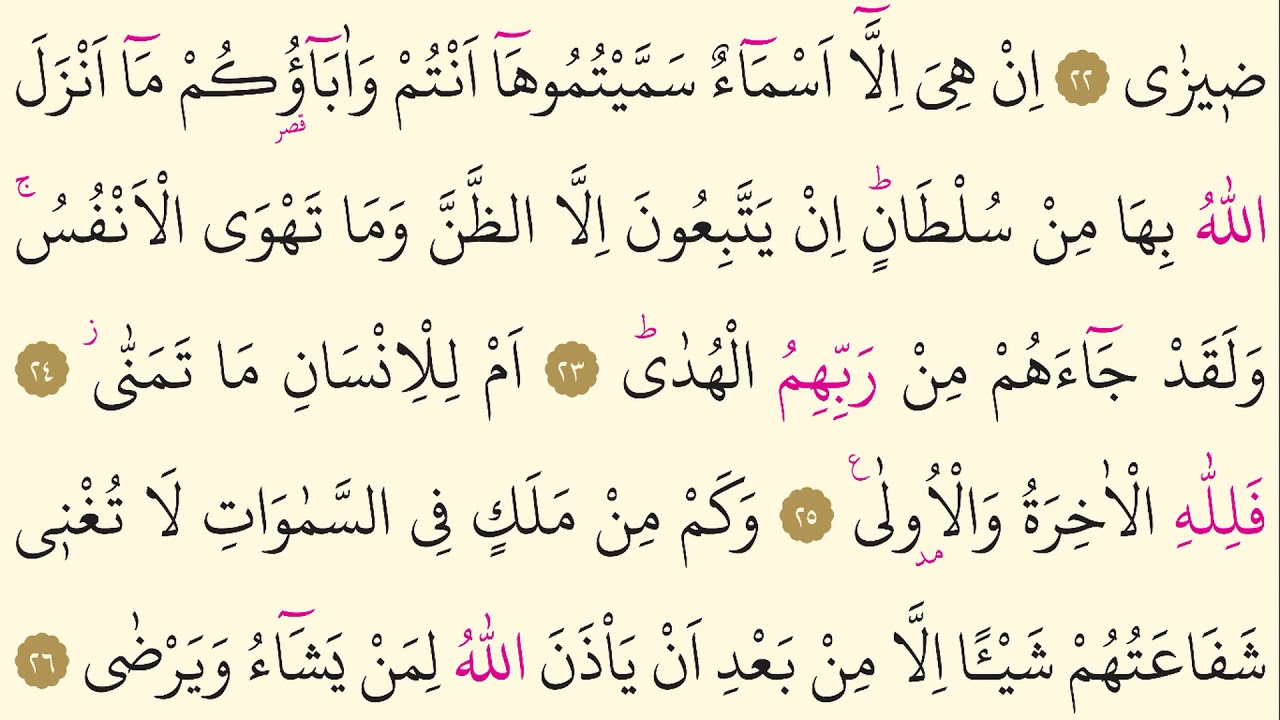 ضٖيزٰى ﴿٢٢﴾ اِنْ هِىَ اِلَّٓا اَسْمَٓاءٌ سَمَّيْتُمُوهَٓا اَنْتُمْ وَاٰبَٓاؤُ۬كُمْ مَٓا اَنْزَلَ
اللّٰهُ بِهَا مِنْ سُلْطَانٍؕ اِنْ يَتَّبِعُونَ اِلَّا الظَّنَّ وَمَا تَهْوَى الْاَنْفُسُۚ
وَلَقَدْ جَٓاءَهُمْ مِنْ رَبِّهِمُ الْهُدٰىؕ ﴿٢٣﴾ اَمْ لِلْاِنْسَانِ مَا تَمَنّٰىؗ ﴿٢٤﴾
فَلِلّٰهِ الْاٰخِرَةُ وَالْاُو۫لٰى ع ﴿٢٥﴾ وَكَمْ مِنْ مَلَكٍ فِى السَّمٰوَاتِ لَا تُغْنٖى
شَفَاعَتُهُمْ شَيْـًٔا اِلَّا مِنْ بَعْدِ اَنْ يَاْذَنَ اللّٰهُ لِمَنْ يَشَٓاءُ وَيَرْضٰى ﴿٢٦﴾